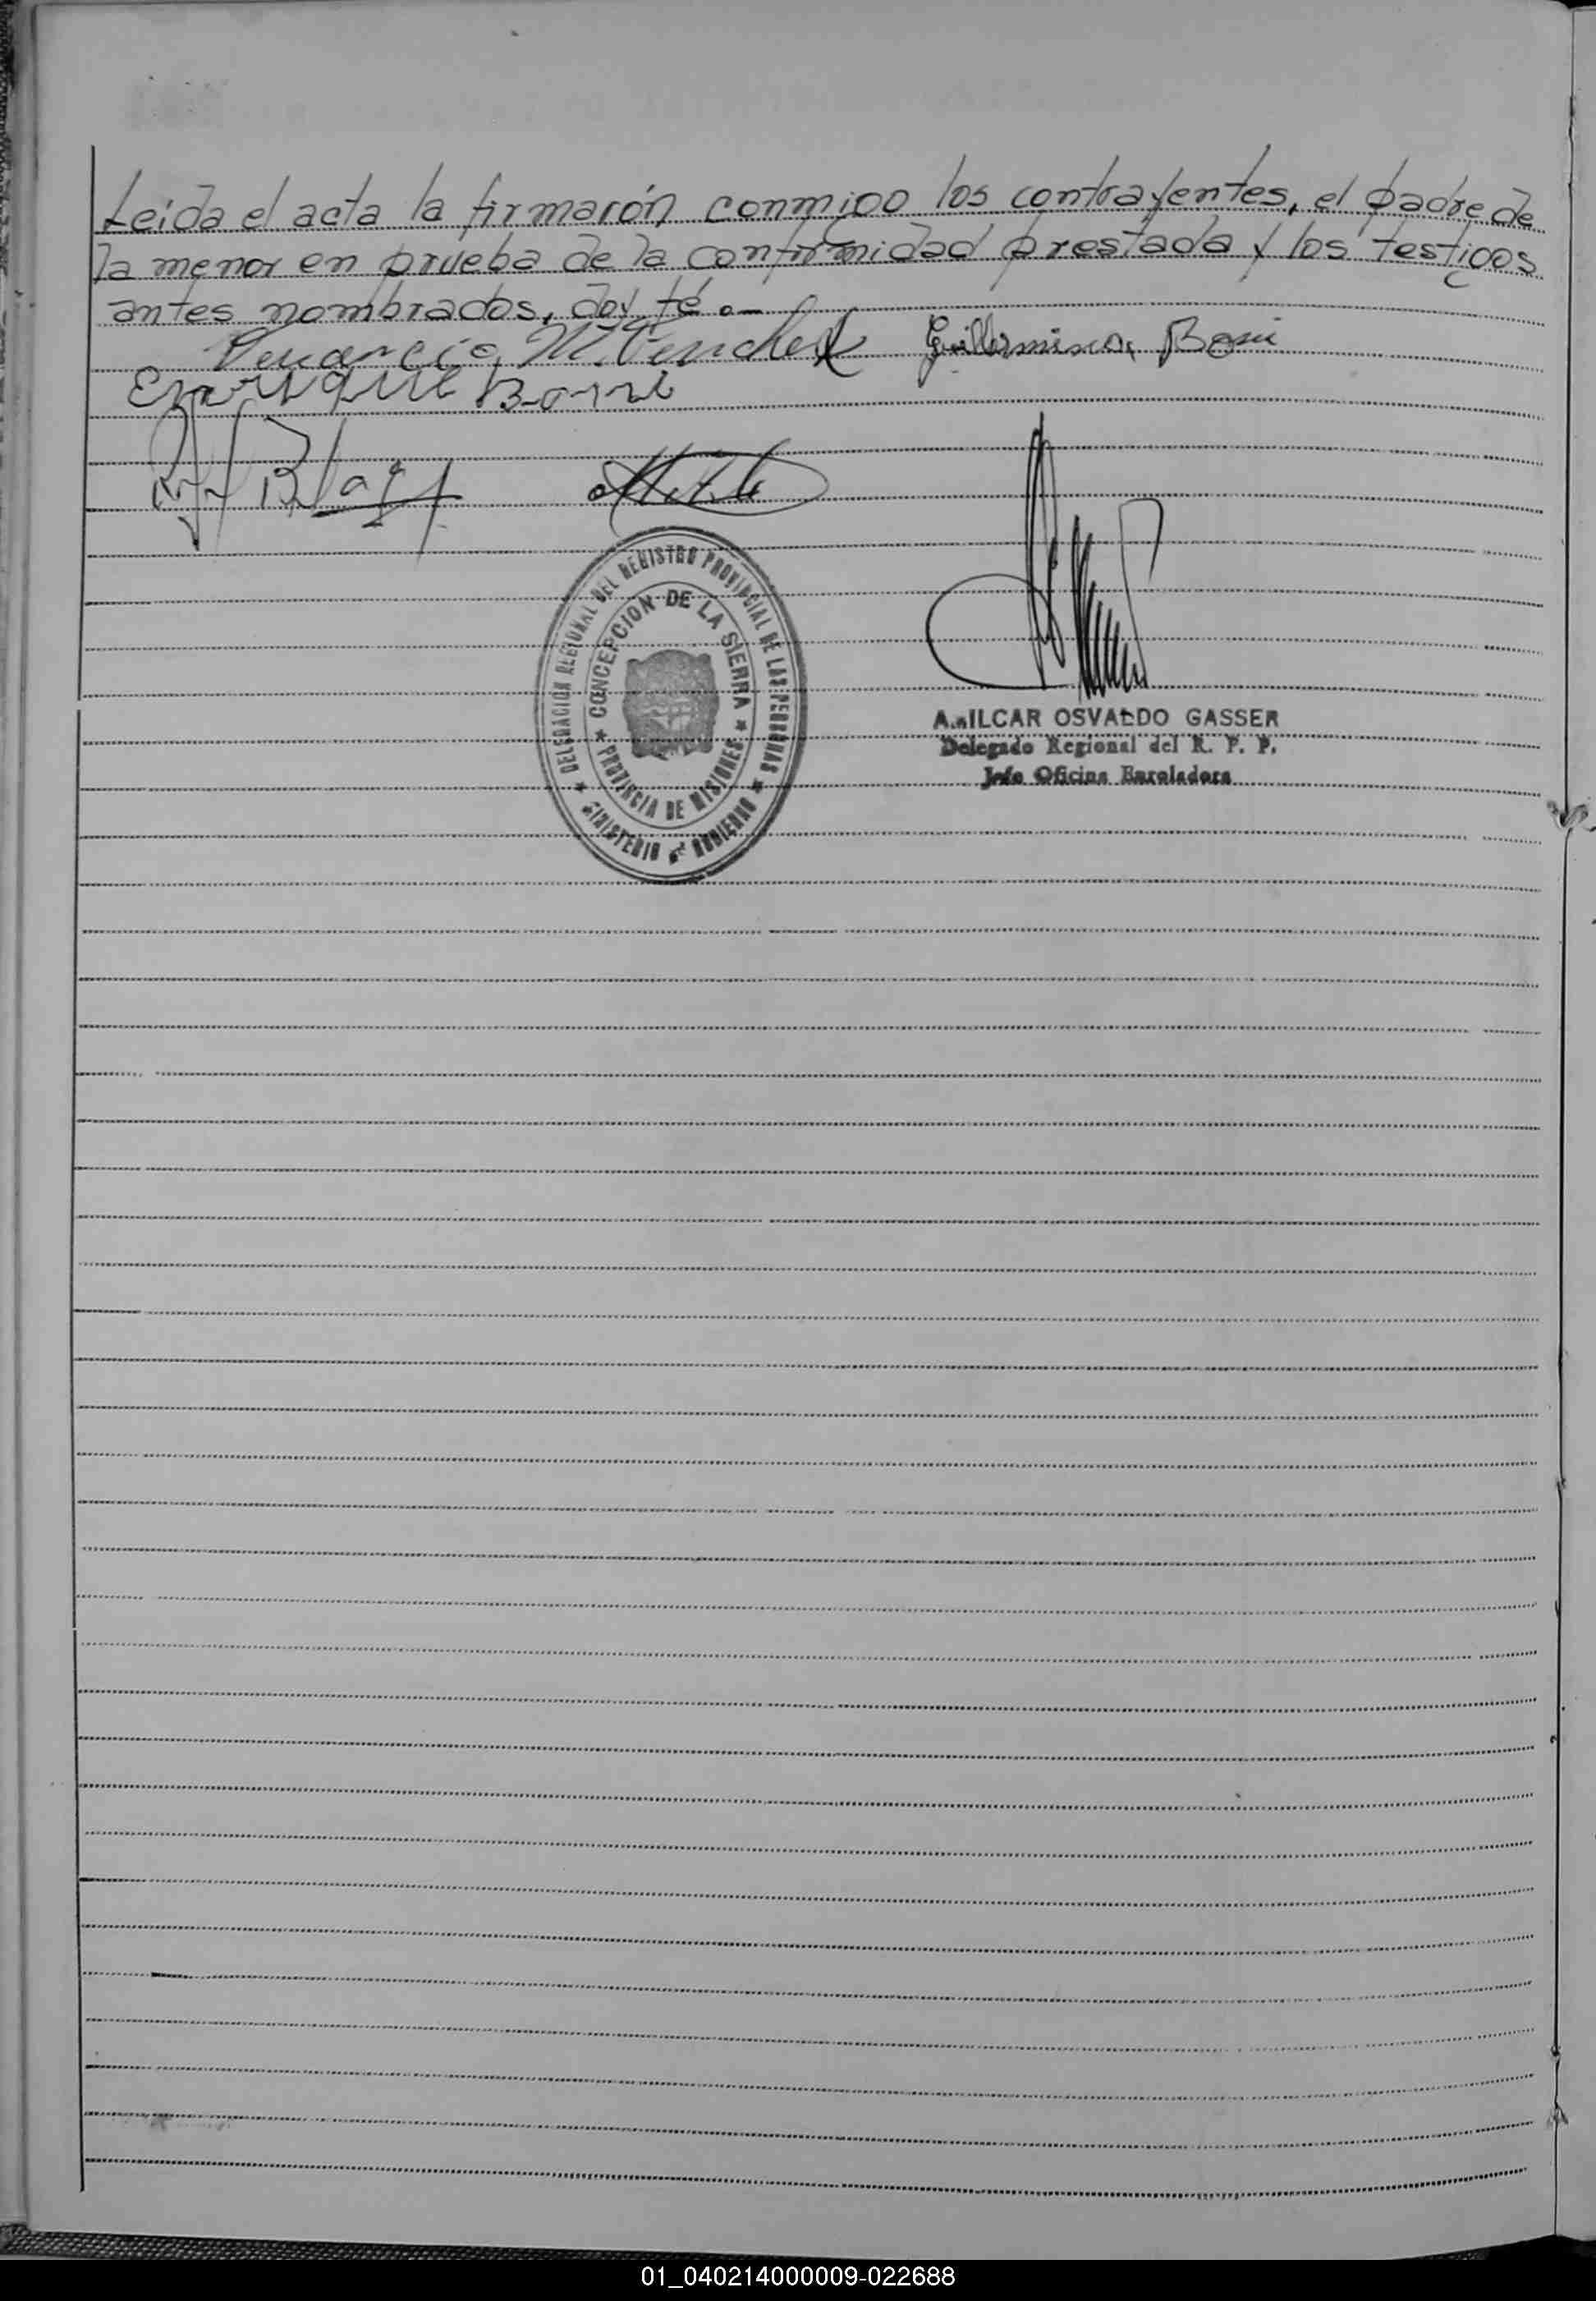 Leida el acta la firmarón conmigo los contrayentes, el padre de
la menor en prueba de la conformidad prestada y los testigos
antes nombrados, doy fé.-
Venancio M.
Guillermina
Enrique
DELEGACIÓN REGIONAL DEL REGISTRO PROVINCIAL DE LAS PERSONAS
CONCEPCION DE LA SIERRA
PROVINCIA DE MISIONES
MINISTERIO DE GOBIERNO
AMILCAR OSVALDO GASSER
Delegado Regional del R. P. P.
Jefe Oficina Enroladora
01_040214000009-022688